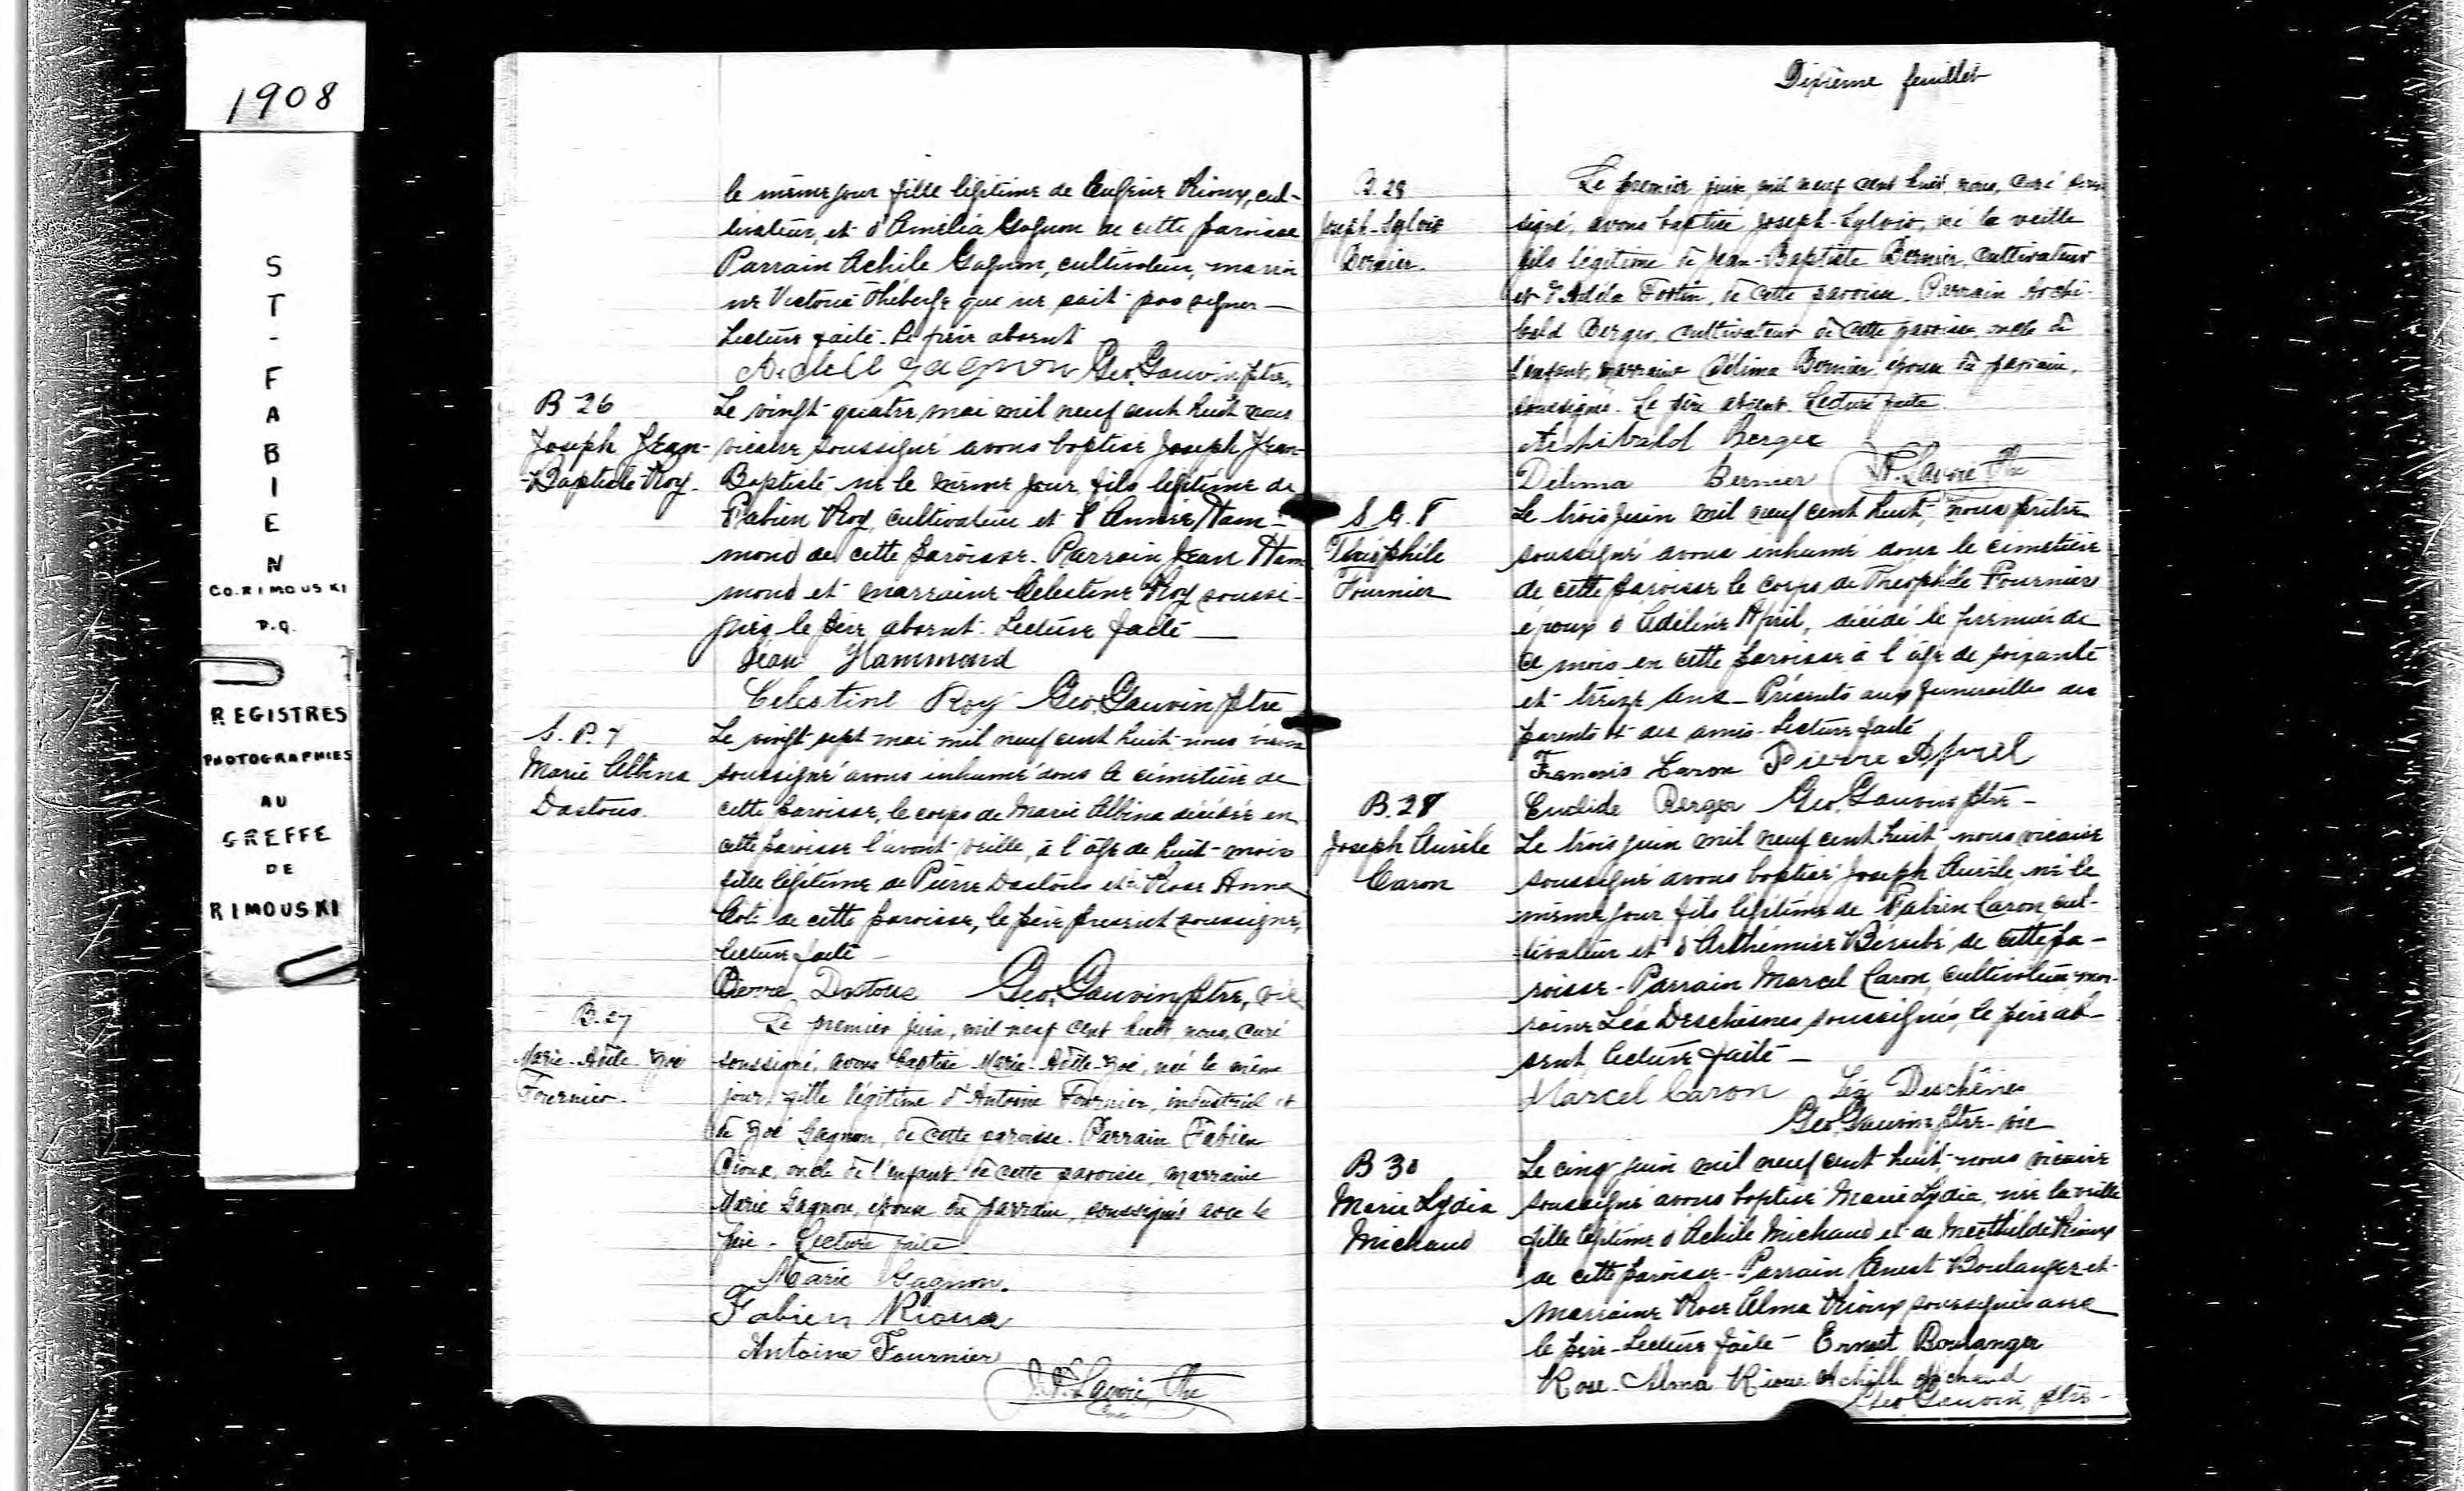 1908
ST-FABIEN
CO. RIMOUSKI
P.Q.
REGISTRES
PHOTOGRAPHIES
AU
GREFFE
DE
RIMOUSKI
le même jour fille légitime de Eugène Rioux, cul-
tivateur, et d'Amélia Gagnon de cette paroisse
Parrain Achile Gagnon, cultivateur, marrai
ne Victoria Théberge que ne sait pas signer —
Lecture faite. Le père absent
Gagnon Geo. Gauvin ptre,
B 26
Joseph Jean-
-Baptiste Roy.
Le vingt-quatre mai mil neuf cent huit nous
vicaire soussigné avons baptisé Joseph Jean-
Baptiste né le même jour, fils légitime de
Fabien Roy, cultivateur et d'Annie Ham-
mond de cette paroisse. Parrain Jean Ham
mond et marraine Célestine Roy soussi-
gnés le père absent. Lecture faite —
Jean Hammond
Celestine Roy Geo. Gauvin ptre
S. P. 7
Marie Albina
Dastous.
Le vingt-sept mai mil neuf cent huit nous vicaire
soussigné avons inhumé dans le cimetière de
cette paroisse, le corps de Marie Albina décédée en
cette paroisse l'avant-veille, à l'âge de huit-mois
fille légitime de Pierre Dastous et de Rose Anna
Coté de cette paroisse, le père présent soussigné,
lecture faite —
Pierre Dastous Geo. Gauvin ptre, vic
B. 27
Marie-Adèle-Zoé
Fournier.
Le premier juin, mil neuf cent huit, nous, curé
soussigné, avons baptisé Marie-Adèle-Zoé, née le même
jour, fille légitime d'Antoine Fournier, industriel et
de Zoé Gagnon, de cette paroisse. Parrain Fabien
Rioux, oncle de l'enfant de cette paroisse, marraine
Marie Gagnon, épouse du parrain, soussignés avec le
père. Lecture faite.
Marie Gagnon.
Fabien Rioux
Antoine Fournier
Lavoie, Ptre
Curé
Dixième feuillet
B. 28
Joseph-Sylvio
Bernier.
Le premier juin, mil neuf cent huit, nous, curé sous
signé, avons baptisé Joseph-Sylvio, né la veille
fils légitime de Jean-Baptiste Bernier, cultivateur
et d'Adéla Fortin, de cette paroisse. Parrain Archi-
bald Berger, cultivateur de cette paroisse oncle de
l'enfant, marraine Délima Bernier épouse du parrain,
soussignés. Le père absent. Lecture faite.
Archibald Berger
Délima Bernier Lavoie Ptre
S. G. 8
Théophile
Fournier
Le trois juin mil neuf cent huit, nous prêtre
soussigné avons inhumé dans le cimetière
de cette paroisse le corps de Théophile Fournier
époux d'Adéline April, décédé le premier de
ce mois en cette paroisse à l'âge de soixante
et treize ans — Présents aux funérailles des
parents et des amis. Lecture faite
François Caron Pierre April
Euclide Berger Geo. Gauvin ptre —
B. 29
Joseph Aurèle
Caron
Le trois juin mil neuf cent huit, nous vicaire
soussigné avons baptisé Joseph Aurèle, né le
même jour fils légitime de Fabien Caron, cul-
tivateur et d'Arthémise Bérubé de cette pa-
roisse — Parrain Marcel Caron, cultivateur, mar-
raine Léa Deschênes soussignés, le père ab-
sent, lecture faite —
Marcel Caron Léa Deschênes
Geo. Gauvin ptre-vic
B 30
Marie Lydia
Michaud
Le cinq juin mil neuf cent huit, nous vicaire
soussigné avons baptisé Marie Lydia, née la veille
fille légitime d'Achile Michaud et de Mathilde Rioux
de cette paroisse — Parrain Ernest Boulanger et
Marraine Rose Alma Rioux soussignés avec
le père — Lecture faite — Ernest Boulanger
Rose-Alma Rioux Achille Michaud
Geo. Gauvin, ptre —